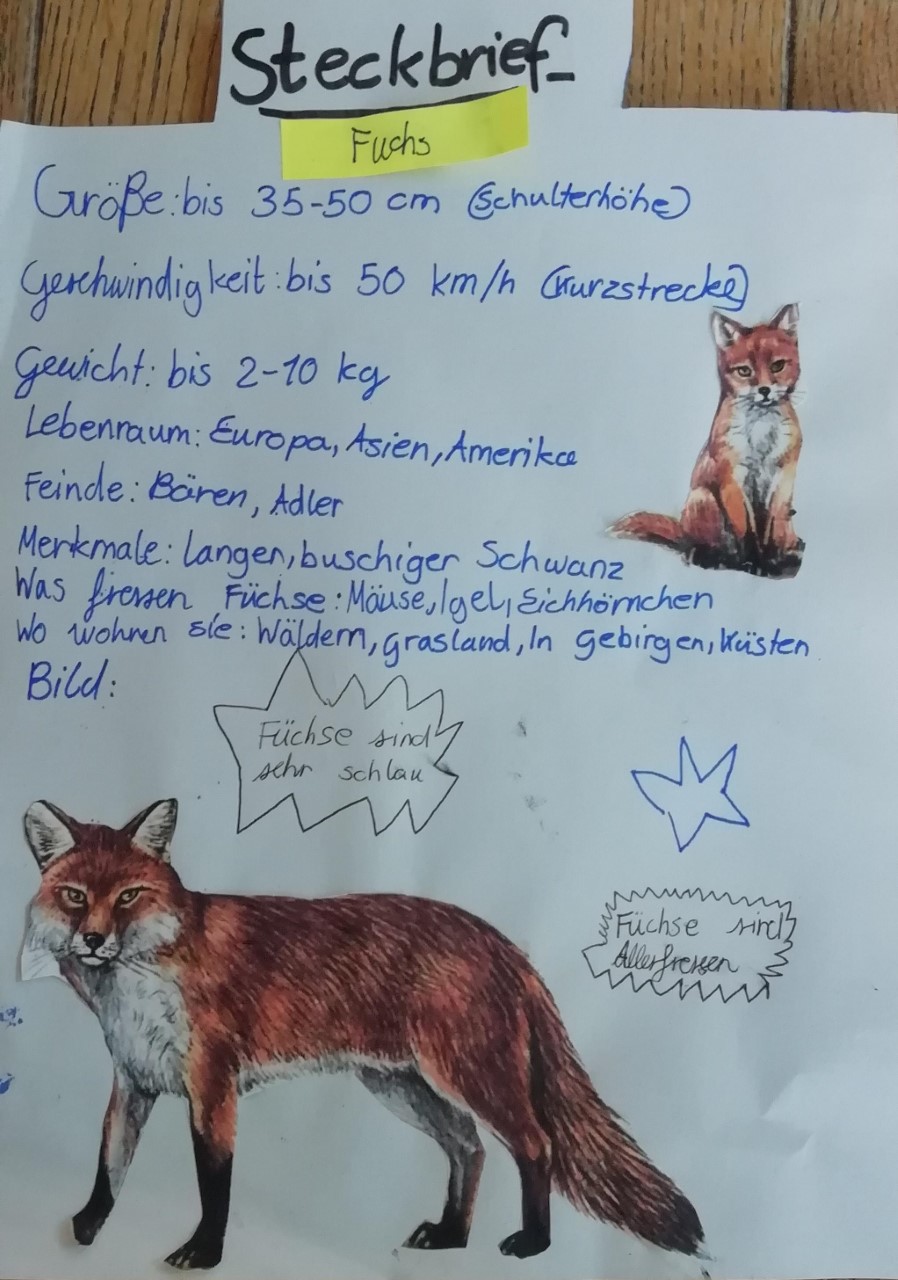 Steckbrief
Fuchs
Größe: bis 35-50 cm (Schulterhöhe)
Geschwindigkeit: bis 50 km/h (Kurzstrecke)
Gewicht: bis 2-10 kg
Lebenraum: Europa, Asien, Amerika
Feinde: Bären, Adler
Merkmale: Langen, buschiger Schwanz
Was fressen Füchse: Mäuse, Igel, Eichhörnchen
Wo wohnen sie: Wäldern, grasland, In gebirgen, Küsten
Bild:
Füchse sind
sehr schlau
Füchse sind
Allerfressen